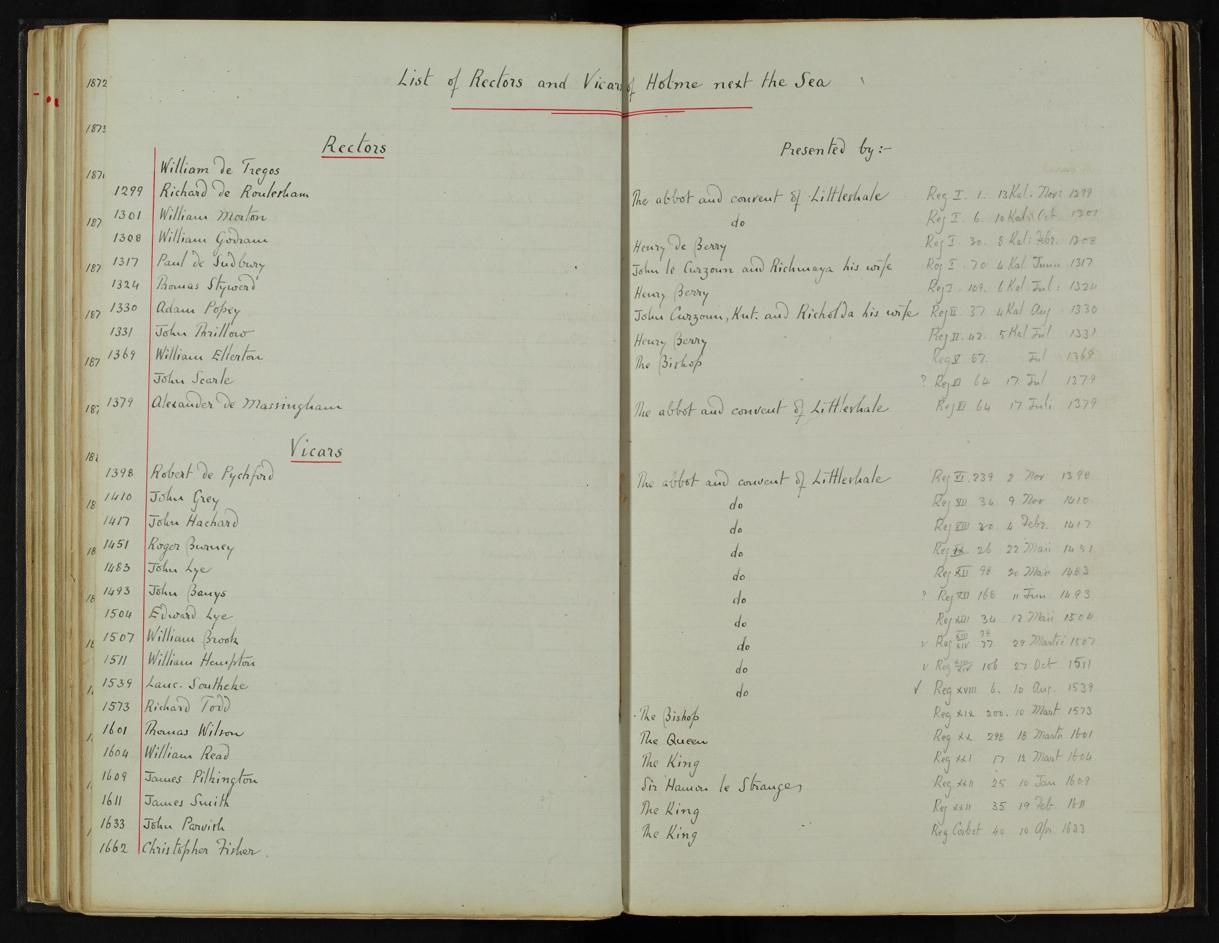 List of Rectors and Vicars of Holme next the Sea
Rectors
Presented by:-
William de Tregos
1299 Richard de Roulesham The abbot and convent of Littleshale Reg I. 1. 13 Kal: Nov: 1299
1301 William Morton do Reg I. 6. 10 Kal: Oct 1301
1308 William Godram Henry de Berry Reg I. 30. 8 Kal: Febr. 1308
1317 Paul de Sudbury John le Curzoun and Richmaya his wife Reg I. 70 4 Kal Junii 1317
1324 Thomas Styward Henry Berry Reg I. 109. 6 Kal Jul: 1324
1330 Adam Popey John Curzoun, Knt. and Richolda his wife Reg II. 37 4 Kal Aug 1330
1331 John Thrillow Henry Berry Reg II. 42. 5 Kal Jul 1331
1369 William Ellerton The Bishop Reg V 67. Jul 1369
John Searle ? Reg VI 64 17 Jul 1379
1379 Alexander de Massingham The abbot and convent of Littleshale Reg VI 64 17 Juli 1379
Vicars
1398 Robert de Pychford The abbot and convent of Littleshale Reg VI. 239 2 Nov 1398
1410 John Grey do Reg VII 34 9 Nov 1410
1417 John Hachard do Reg VIII 20 4 Febr. 1417
1451 Roger Burney do Reg 26 22 Maii 1451
1483 John Lye do Reg XII 98 20 Mar 1483
1493 John Banys do ? Reg XII 168 11 Jun 1493
1504 Edward Lye do Reg XIII 34 12 Maii 1504
1507 William Brook do v Reg XIII XIV 78 77 29 Martii 1507
1511 William Hempton do v Reg XIV 106 27 Oct 1511
1539 Lanc. Southeke do √ Reg XVIII 6. 10 Aug. 1539
1573 Richard Todd The Bishop Reg XIX 200. 10 Mart 1573
1601 Thomas Wilson The Queen Reg XX 298 18 Martii 1601
1604 William Read The King Reg XXI 17 12 Mart 1604
1609 James Pilkington Sir Hamon le Strange Reg. XXII 25 10 Jan 1609
1611 James Smith The King Reg XXII 35 19 Feb 1611
1633 John Parvish The King Reg Corbet 40 10 Apr. 1633
1662 Christopher Fisher.